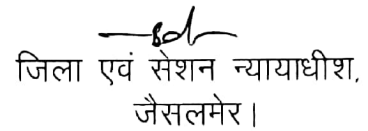 sd
जिला एवं सेशन न्यायाधीश,
जैसलमेर।